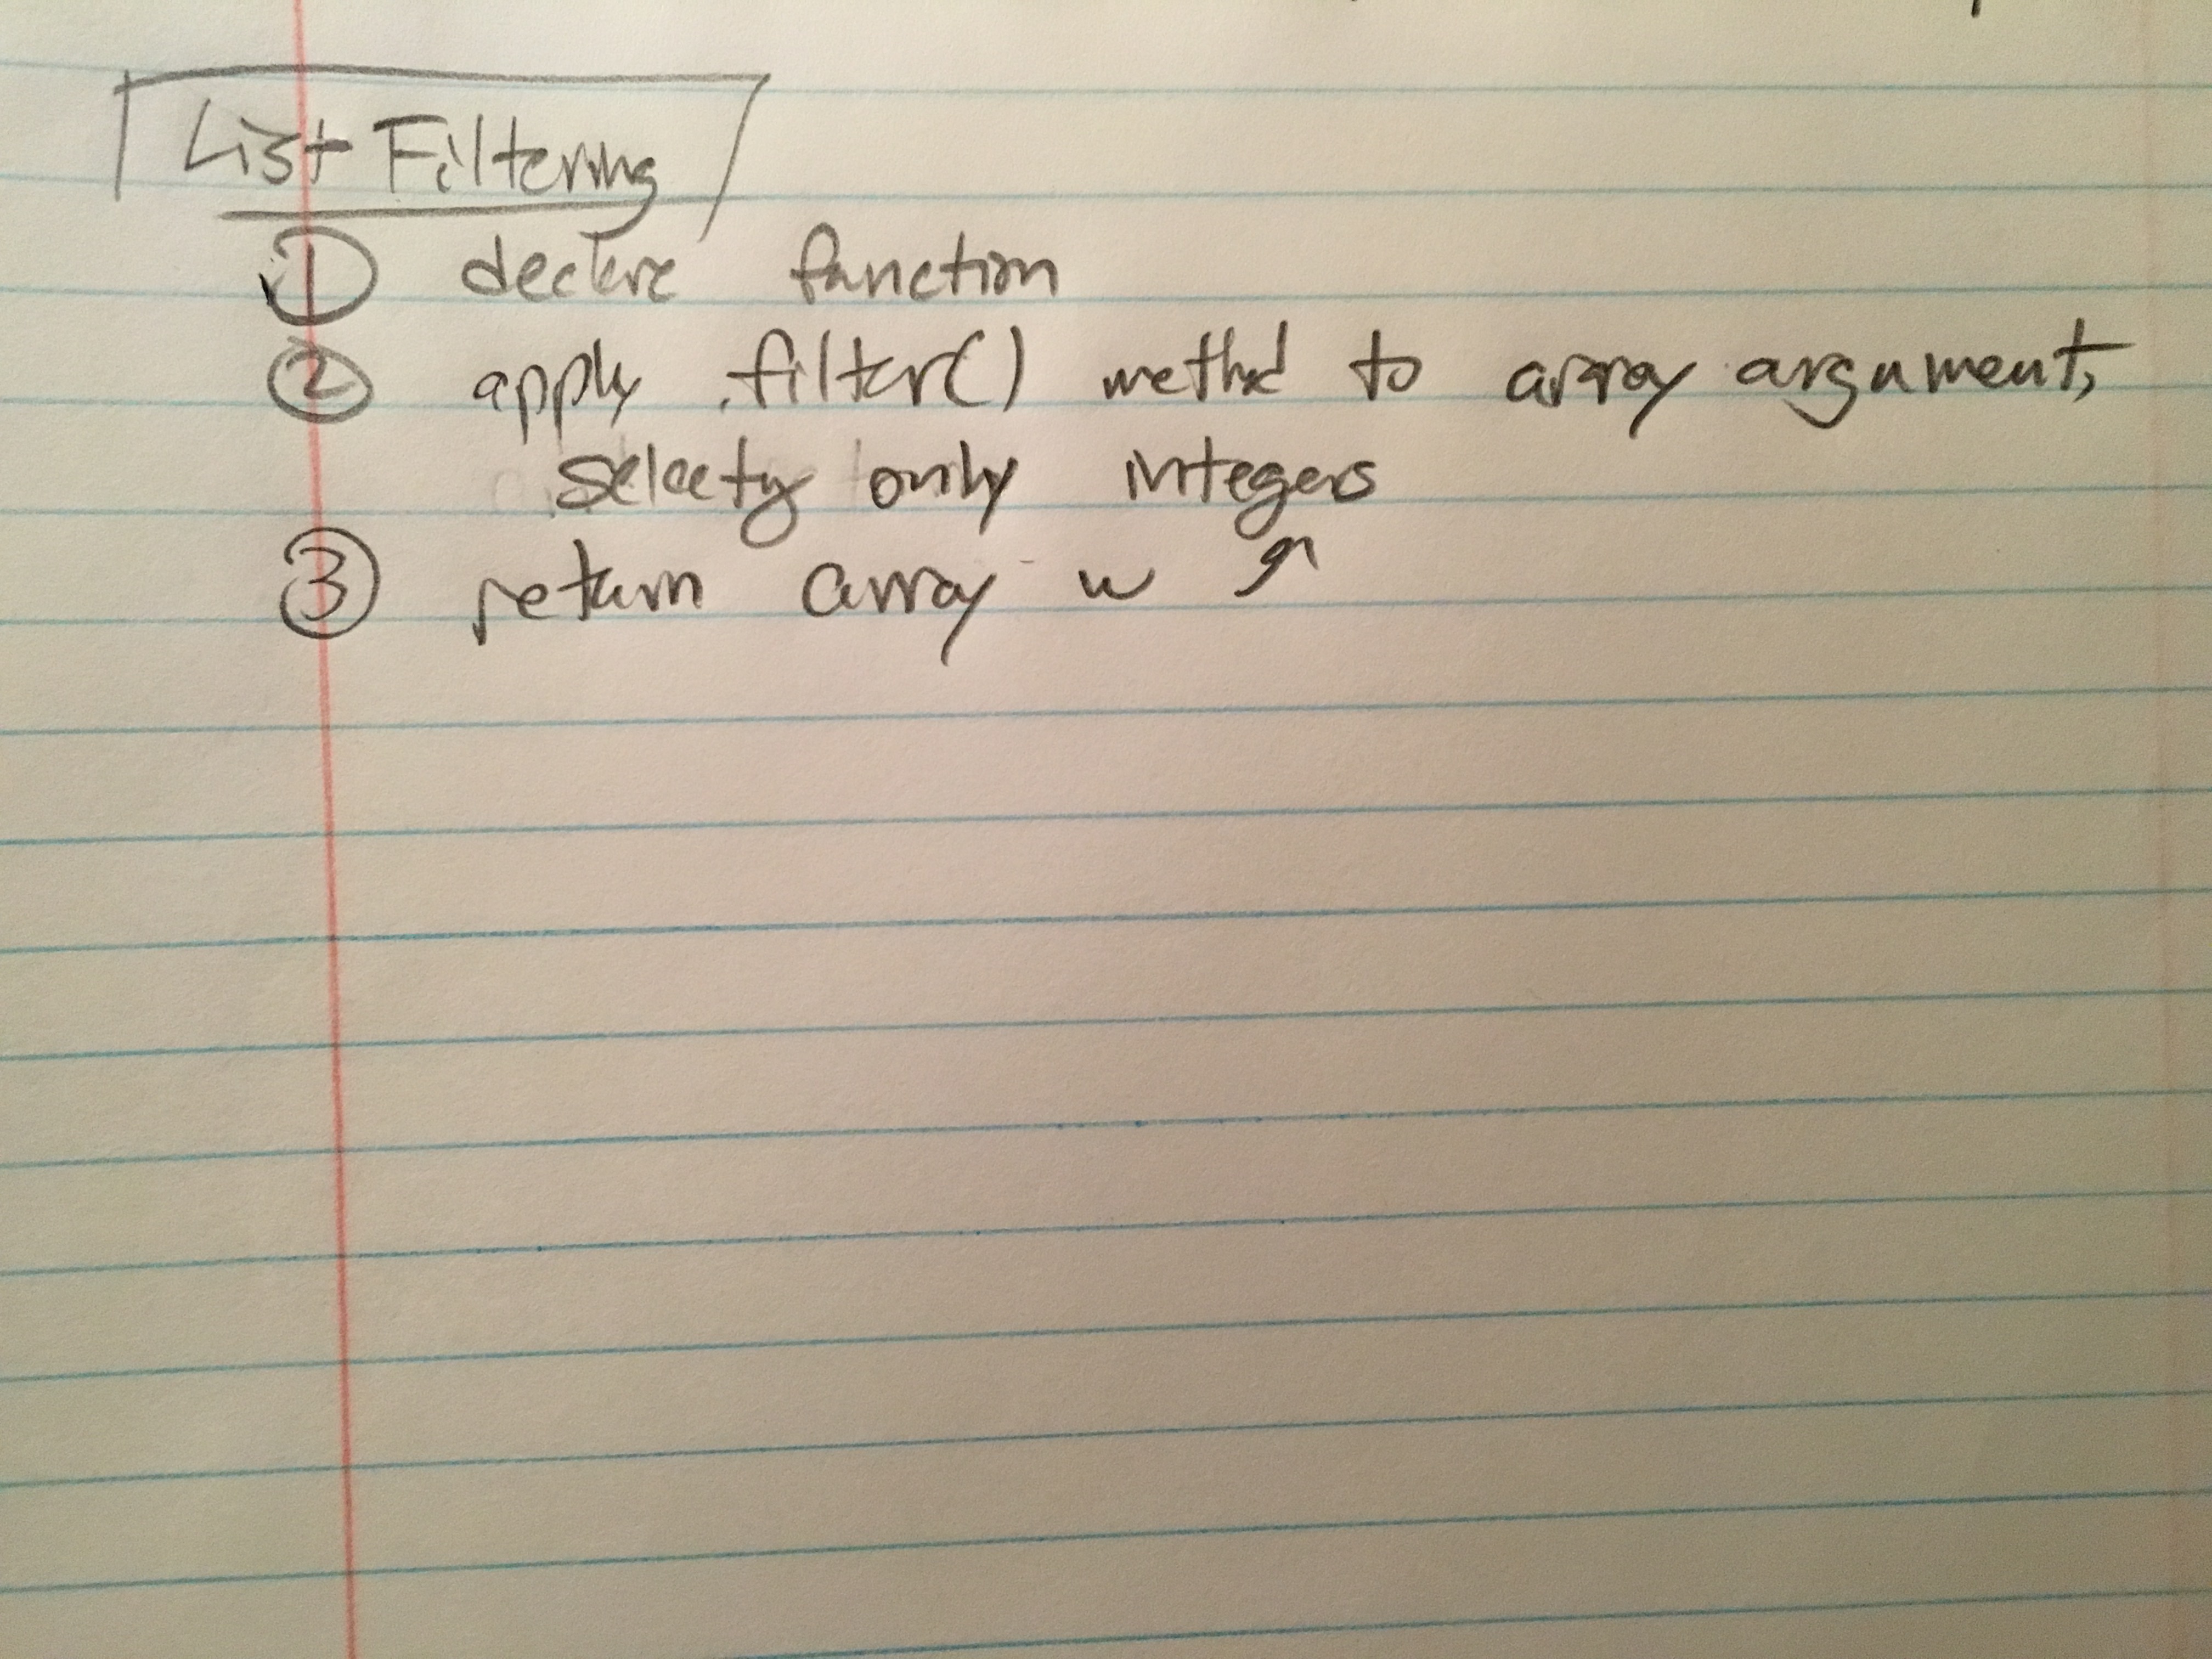 List Filtering
① declare function
② apply .filter() method to array argument,
selecting only integers
③ return array w ↗